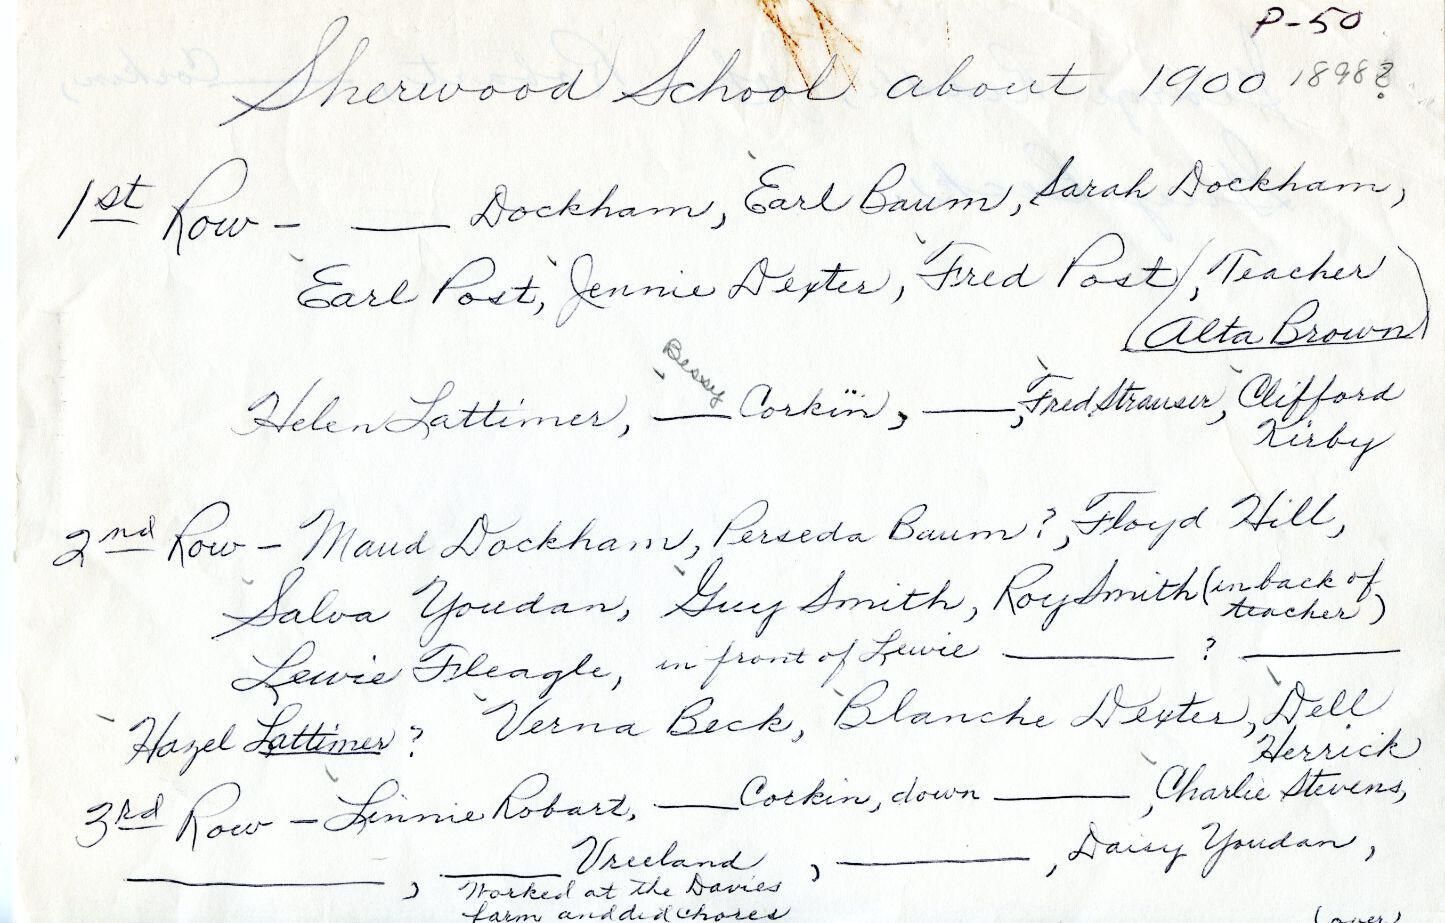 P-50
Sherwood School about 1900 1898?
1st Row - ___ Dockham, Earl Baum, Sarah Dockham,
Earl Post, Jennie Dexter, Fred Post, (Teacher
Alta Brown)
Bessy
Helen Lattimer, ___ Corkin, ___, Fred Strauser, Clifford
Kirby
2nd Row - Maud Dockham, Perseda Baum?, Floyd Hill,
Salva Youdan, Guy Smith, Roy Smith (in back of
teacher)
Lewie Fleagle, in front of Lewie ___ ? ___
Hazel Lattimer? Verna Beck, Blanche Dexter, Dell
Herrick
3rd Row - Linnie Robart, ___ Corkin, down ___, Charlie Stevens,
___, ___ Vreeland, ___, Daisy Youdan,
Worked at the Davies
farm and did chores
(over)